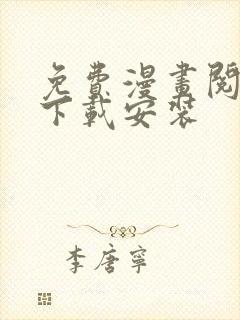 免費漫畫閱
下載安裝
李唐寧